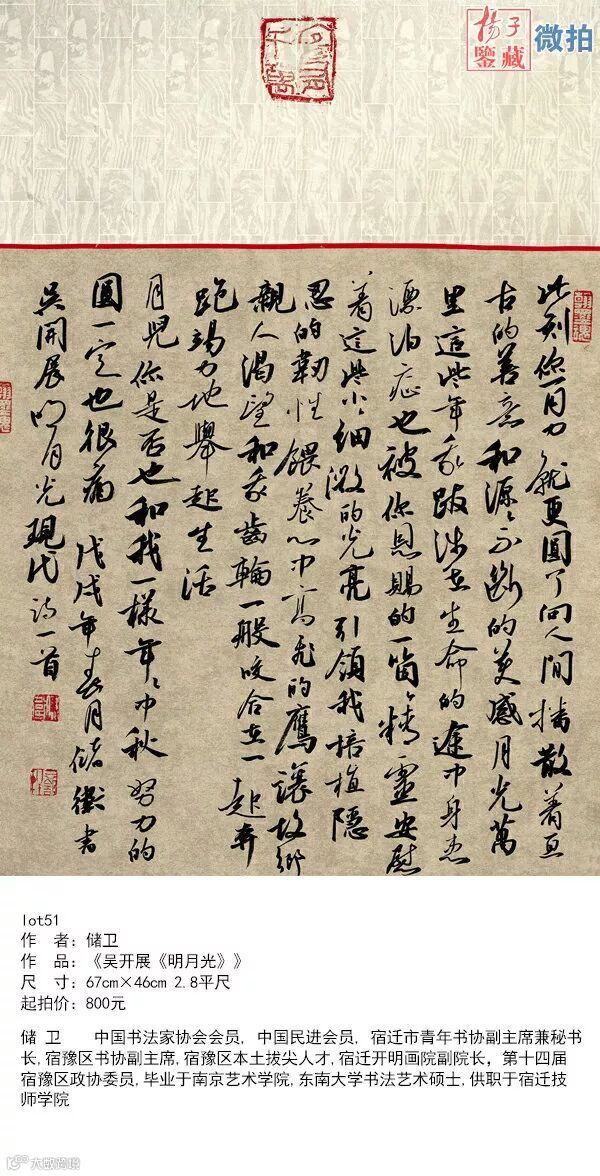 扬子
鉴藏
微拍
此刻你一用力就更圆了向人间播散着亘
古的善意和源源不断的美感月光万
里這些年我跋涉在生命的途中身患
漂泊症也被你恩賜的一箇箇精靈安慰
着這些小小細微的光亮引領我培植隱
忍的韌性餵養心中高飛的鷹讓故鄉
親人渴望和我齒輪一般咬合在一起奔
跑竭力地舉起生活
月兒你是否也和我一樣年年中秋努力的
圓一定也很痛 戊戌年春月儲衛書
吳開展明月光現代詩一首
lot51
作 者：储卫
作 品：《吴开展《明月光》》
尺 寸：67cm×46cm 2.8平尺
起拍价：800元
储 卫 中国书法家协会会员, 中国民进会员, 宿迁市青年书协副主席兼秘书
长,宿豫区书协副主席,宿豫区本土拔尖人才,宿迁开明画院副院长，第十四届
宿豫区政协委员,毕业于南京艺术学院,东南大学书法艺术硕士,供职于宿迁技
师学院
大数跨境